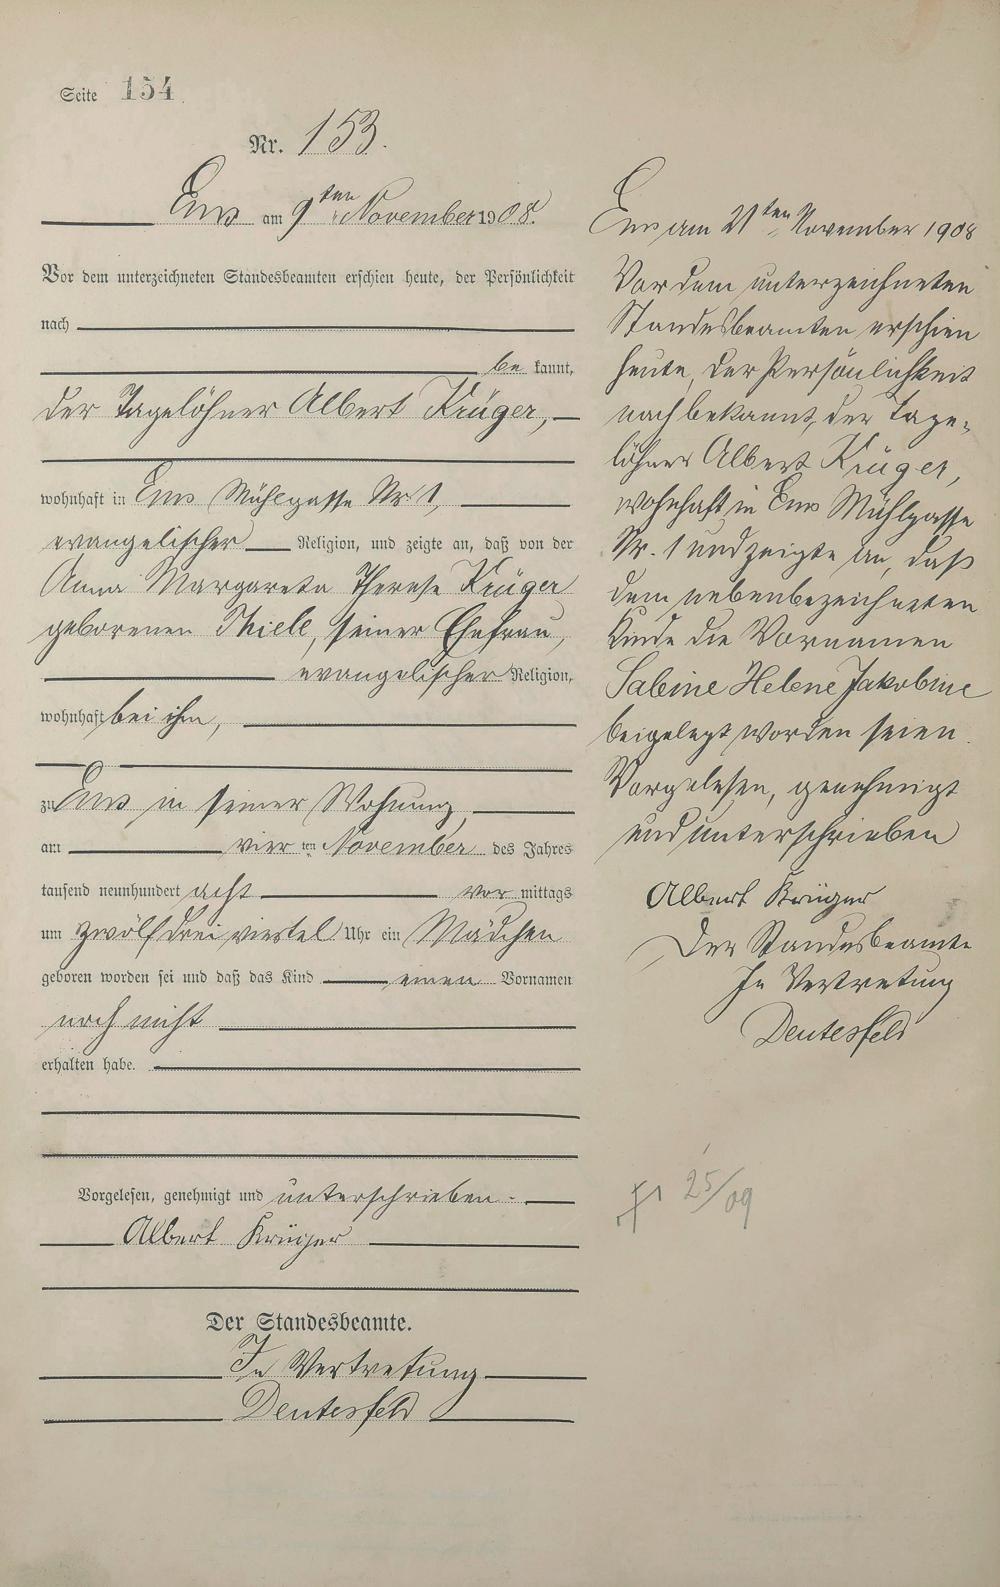 Seite 154
Nr. 153.
Ems am 9ten November 1908.
Vor dem unterzeichneten Standesbeamten erschien heute, der Persönlichkeit
nach
be kannt,
der Tagelöhner Albert Krüger,
wohnhaft in Ems Mühlgasse Nr 1,
evangelischer Religion, und zeigte an, daß von der
Anna Margareta Therese Krüger
geborenen Thiele, seiner Ehefrau,
evangelischer Religion,
wohnhaft bei ihm,
zu Ems in seiner Wohnung,
am vier ten November des Jahres
tausend neunhundert acht vor mittags
um zwölf drei viertel Uhr ein Mädchen
geboren worden sei und daß das Kind einen Vornamen
noch nicht
erhalten habe.
Vorgelesen, genehmigt und unterschrieben.
Albert Krüger
Der Standesbeamte.
In Vertretung
Deutesfeld
Ems am 21ten November 1908
Vor dem unterzeichneten
Standesbeamten erschien
heute, der Persönlichkeit
nach bekannt, der Tage-
löhner Albert Krüger,
wohnhaft in Ems Mühlgasse
Nr. 1 und zeigte an, daß
dem nebenbezeichneten
Kinde die Vornamen
Sabine Helene Jakobine
beigelegt worden seien.
Vorgelesen, genehmigt
und unterschrieben
Albert Krüger
Der Standesbeamte
In Vertretung
Deutesfeld
25/09